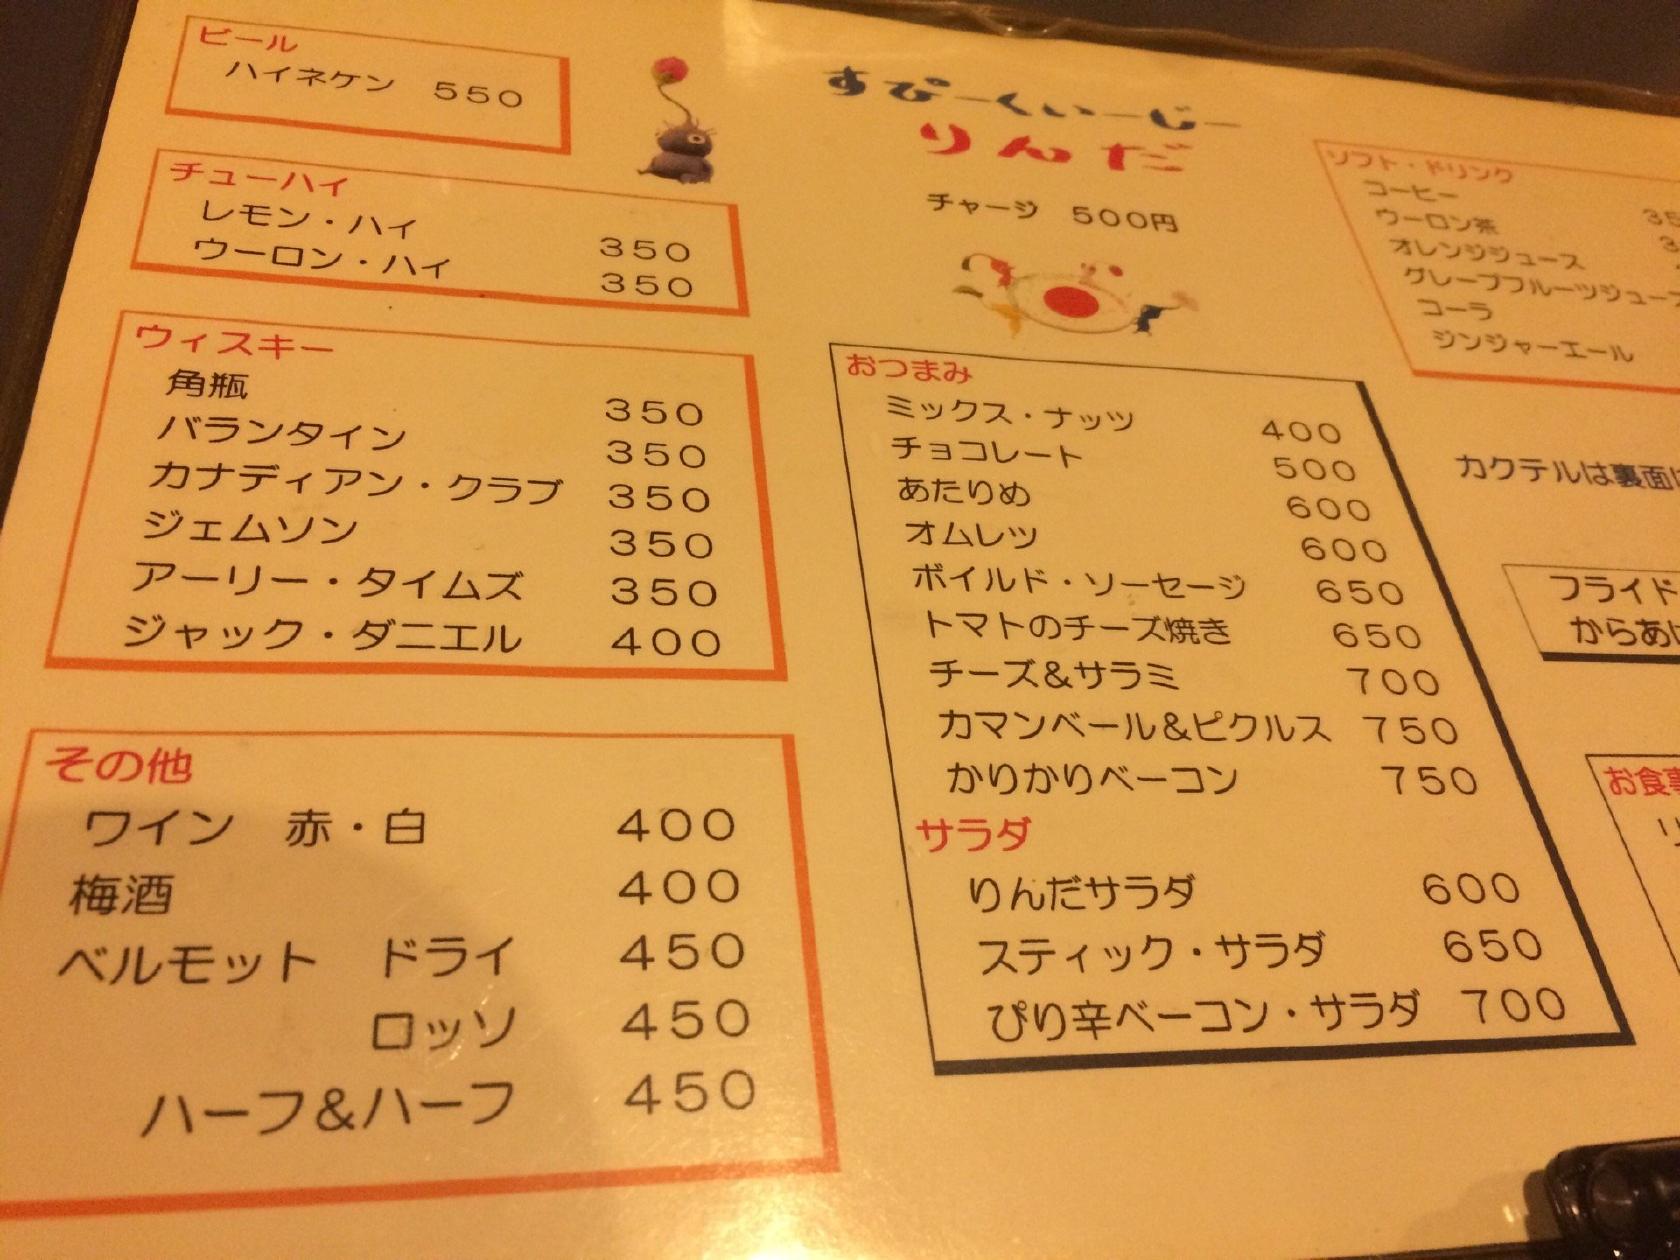 ビール
ハイネケン 550
チューハイ
レモン・ハイ 350
ウーロン・ハイ 350
ウィスキー
角瓶 350
バランタイン 350
カナディアン・クラブ 350
ジェムソン 350
アーリー・タイムズ 350
ジャック・ダニエル 400
その他
ワイン 赤・白 400
梅酒 400
ベルモット ドライ 450
ロッソ 450
ハーフ&ハーフ 450
すぴーくいーじー
りんだ
チャージ 500円
おつまみ
ミックス・ナッツ 400
チョコレート 500
あたりめ 600
オムレツ 600
ボイルド・ソーセージ 650
トマトのチーズ焼き 650
チーズ&サラミ 700
カマンベール&ピクルス 750
かりかりベーコン 750
サラダ
りんだサラダ 600
スティック・サラダ 650
ぴり辛ベーコン・サラダ 700
ソフト・ドリンク
コーヒー
ウーロン茶
オレンジジュース
グレープフルーツジュース
コーラ
ジンジャーエール
カクテルは裏面に
フライド
からあげ
お食事